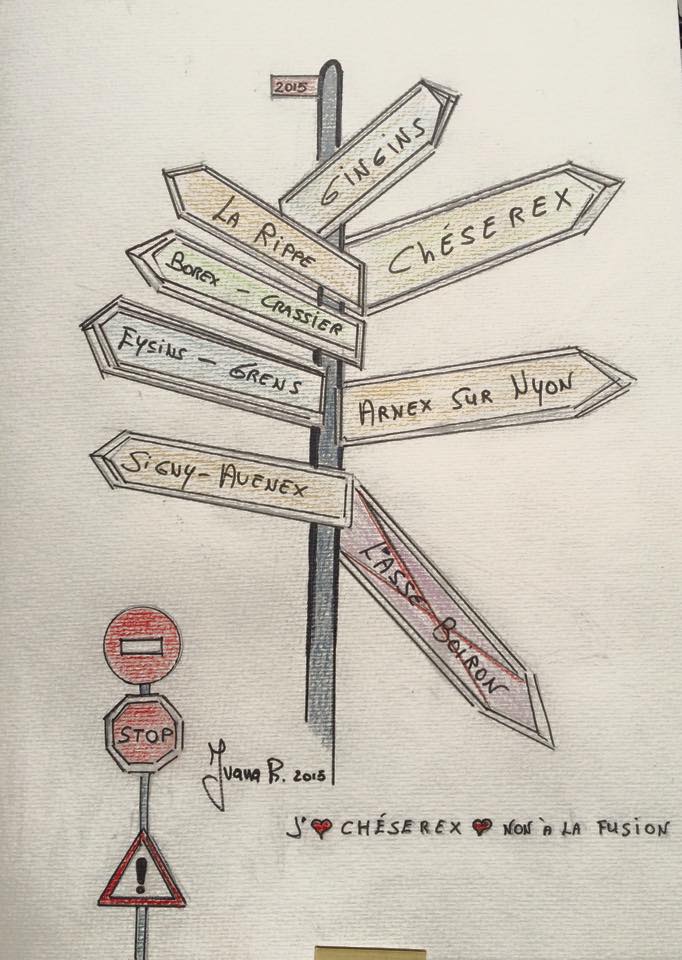 2015
GiNGiNS
LA RiPPE
ChÉSEREX
BOREX - CRASSIER
EYSiNS - GRENS
ARNEX SUR NYON
SiGNY-AVENEX
L'ASSE BOIRON
STOP
Ivana B. 2015
J'♥ CHÉSEREX ♥ NON À LA FUSION